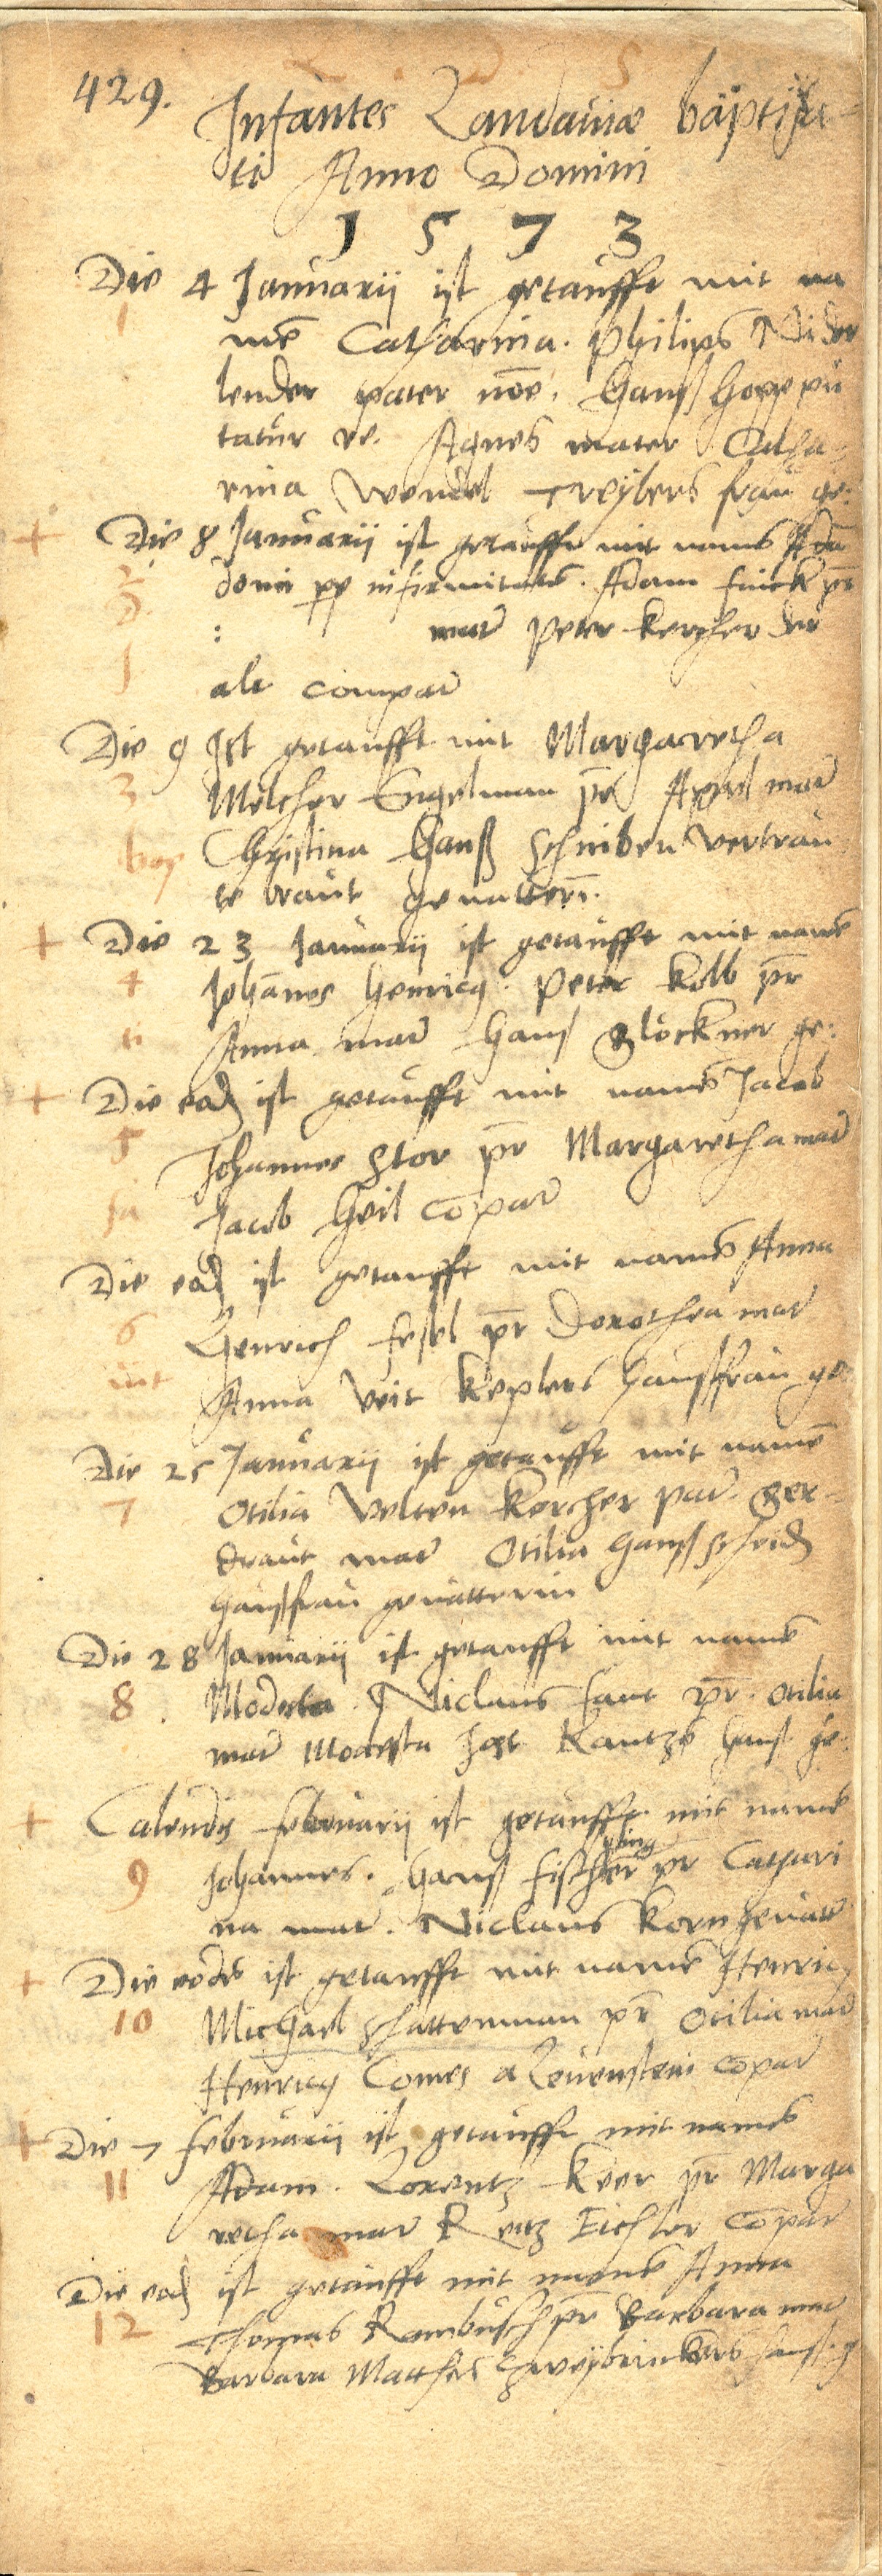 429.
Infantes Landauiæ baptiza=
ti Anno Domini
1 5 7 3
Die 4 Januarii ist getaufft mit na
1
mē Catharina. Philips Nider
lender pater nōē. Hanß Hopp pu
tatur re. Agnes mater Catha=
rina Wendel Treÿbers frau ge:
+ Die 8 Januarii ist getaufft mit namē Adā
2
domi pp infirmitatē. Adam Finck pr̄
: mater Peter Kercher der
alt compar
Die 9 Ist getaufft mit Margaretha
3
Melcher Engelman pr̄ Appel mar̄
Christina Hanß Schriben vertrau
te braut geuatterī.
+ Die 23 Januarii ist getaufft mit namē
4
Johānes Henricꝰ. Peter Kolb pr̄
Anna mar̄ Hans Glöckner ge:
+ Die eod ist getaufft mit namē Jacob
5
Johannes Stor pr̄ Margaretha mar̄
Jacob Heil cōpar
Die eod ist getaufft mit namē Anna
6
Henrich Fesel pr̄ Dorothea mar̄
Anna Veit Keplers Haußfrau ge
Die 25 Januarii ist getaufft mit namē
7
Otilia Velten Kercher par̄. Ger-
draut mar̄ Otilia Hanß
Haußfrau geuatterin
Die 28 Januarii ist getaufft mit namē
8 Modesta. Niclaus Faut pr̄. Otilia
mar̄ Modesta Jost Kantzs Hauß ge:
+ Calendis Februarii ist getaufft mit namē
9 Johannes. Hanß Fischer pr̄ Cathari
na mar̄. Niclaus Korn geuatt̄
+ Die eodē ist getaufft mit namē Henricꝰ
10 Michael Schattenman pr̄ Otilia mar̄
Henricꝰ Comes a Leuenstein cōpar
+ Die 7 Februarii ist getaufft mit namē
11 Adam. Lorentz Keer pr̄ Marga
retha mar̄ Reitz Eichler cōpar
Die eod ist getaufft mit namē Anna
12
Thomas Rambusch pr̄ Barbara mar̄
Barbara Matthes Zweÿbrinckers hauß. g